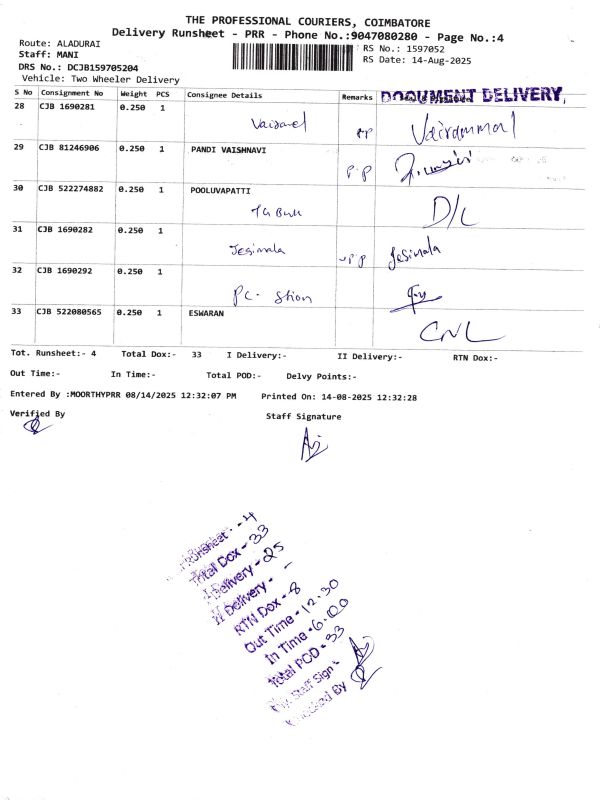 THE PROFESSIONAL COURIERS, COIMBATORE
Delivery Runsheet - PRR - Phone No.:9047080280 - Page No.:4
Route: ALADURAI
Staff: MANI
DRS No.: DCJB159705204
Vehicle: Two Wheeler Delivery
RS No.: 1597052
RS Date: 14-Aug-2025
S No Consignment No Weight PCS Consignee Details Remarks
DOCUMENT DELIVERY,
28 CJB 1690281 0.250 1
PP Vairammal
29 CJB 81246906 0.250 1 PANDI VAISHNAVI
PP
30 CJB 522274882 0.250 1 POOLUVAPATTI
D/L
31 CJB 1690282 0.250 1
Jesimala PP Jesimala
32 CJB 1690292 0.250 1
PC- Stion
33 CJB 522080565 0.250 1 ESWARAN
CNL
Tot. Runsheet:- 4 Total Dox:- 33 I Delivery:- II Delivery:- RTN Dox:-
Out Time:- In Time:- Total POD:- Delvy Points:-
Entered By :MOORTHYPRR 08/14/2025 12:32:07 PM Printed On: 14-08-2025 12:32:28
Verified By Staff Signature
Runsheet - 4
Total Dox - 33
I Delivery - 25
II Delivery - -
RTN Dox - 8
Out Time - 12.30
In Time - 6.00
Total POD - 33
Staff Sign -
Checked By